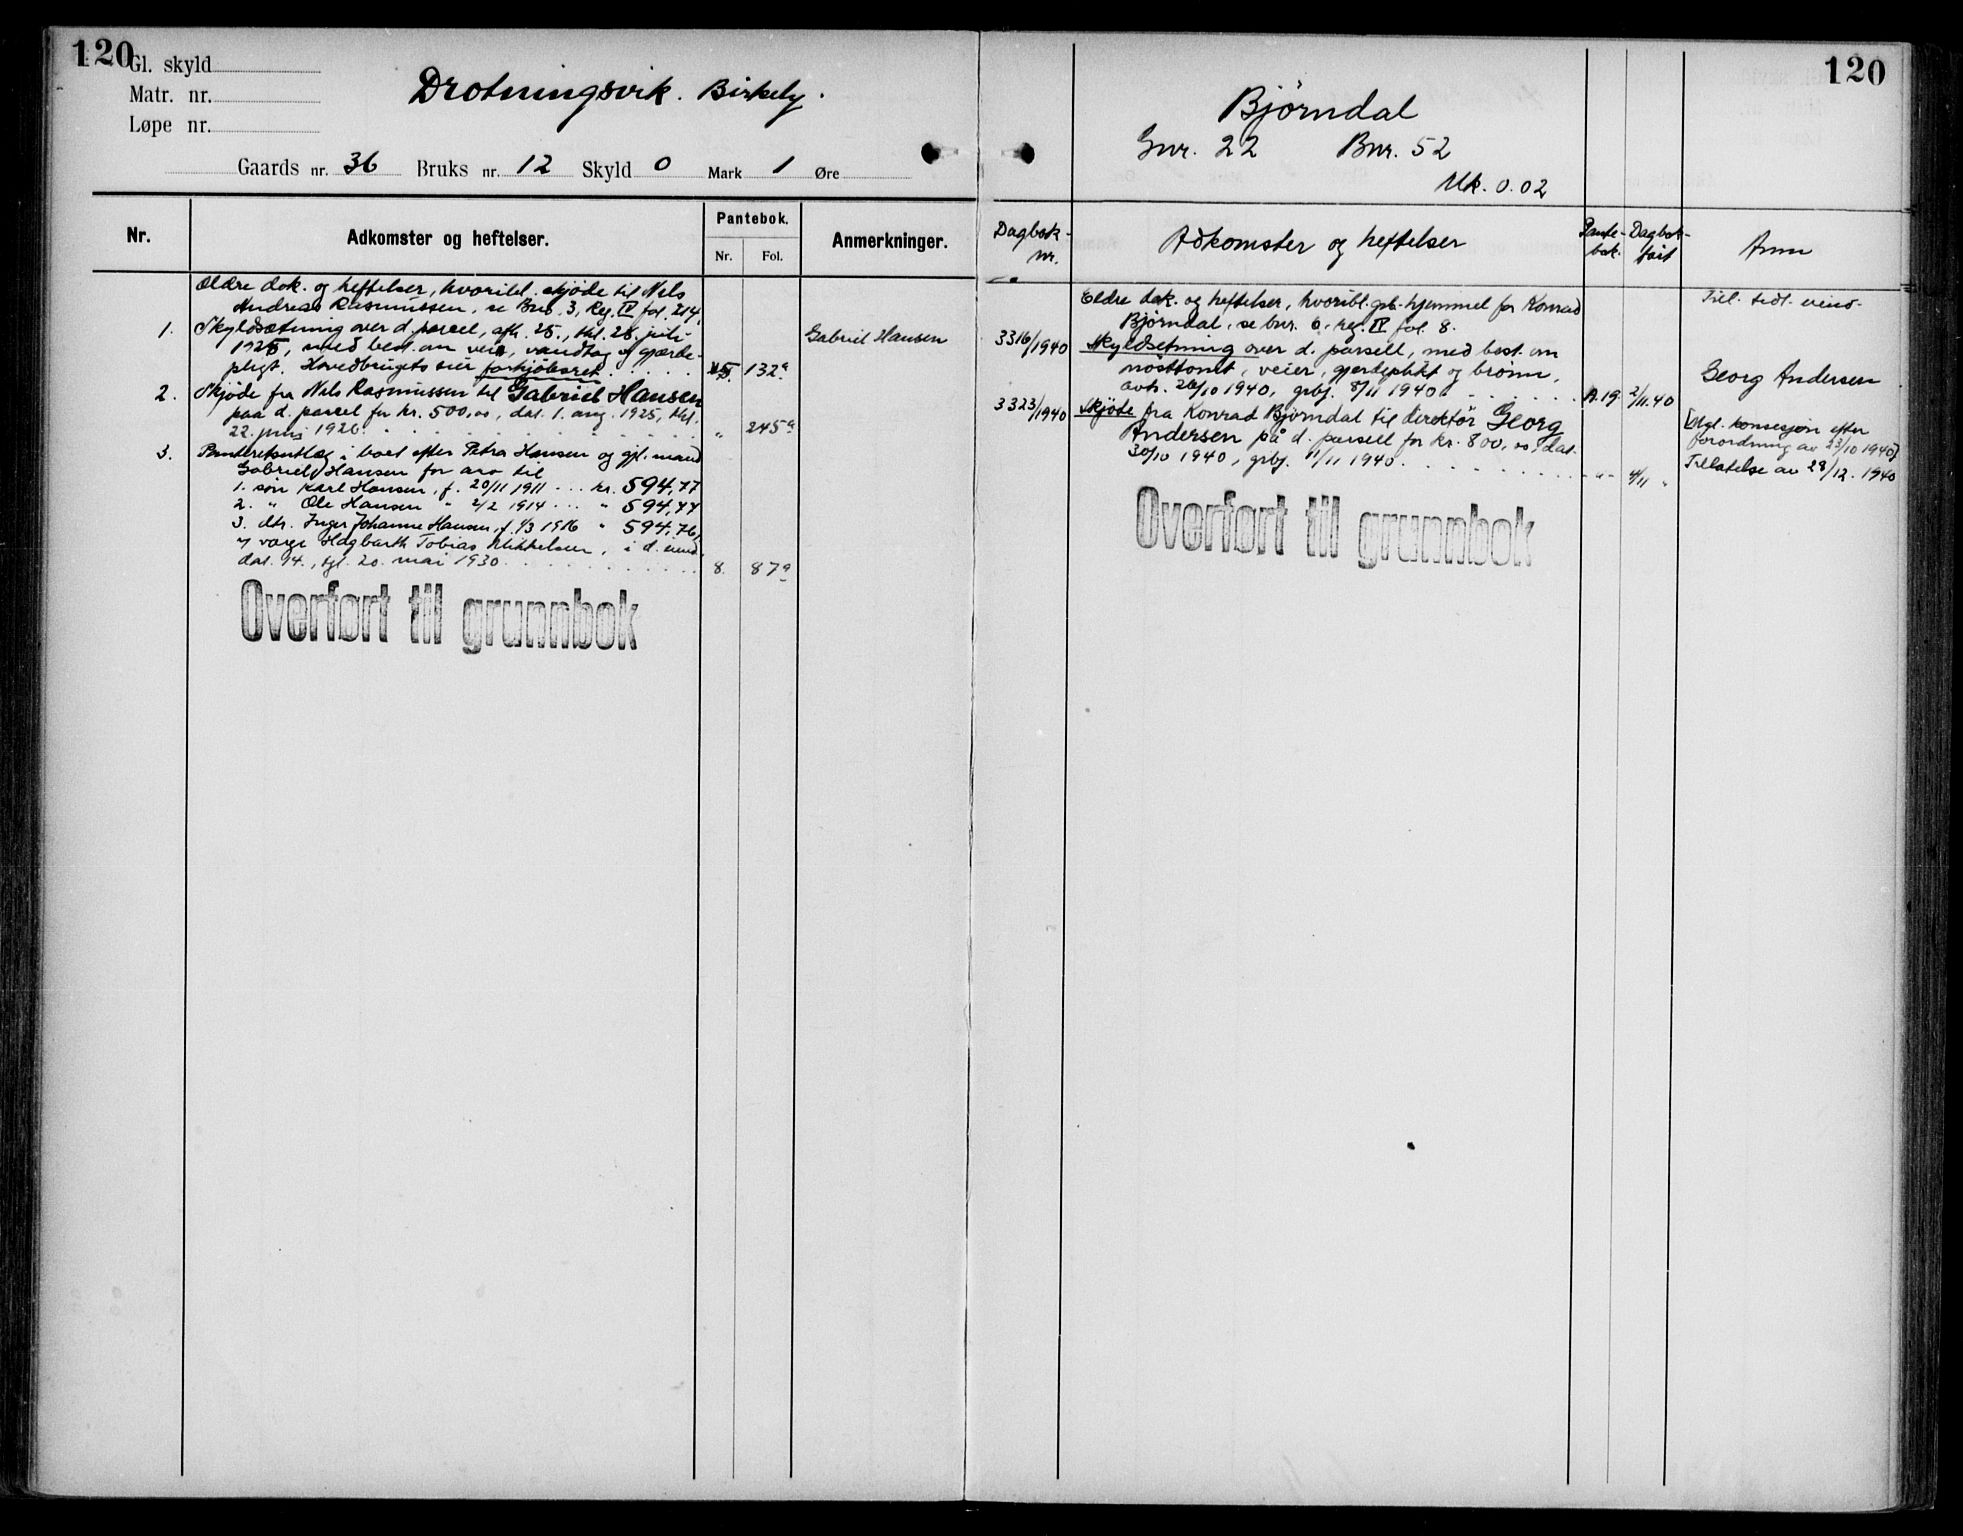 120
Gl. skyld
Matr. nr.
Løpe nr.
Drotningsvik. Birkely.
Gaards nr. 36 Bruks nr. 12 Skyld 0 Mark 1 Øre
Nr.
Adkomster og heftelser.
Pantebok.
Nr. Fol.
Anmerkninger.
Ældre dok. og heftelser, hvoribl. skjøde til Nels
Andreas Rasmussen, se Bno. 3, Reg. IV fol. 214.
1. Skyldsætning over d. parcel, afh. 25., tgl. 28. juli
1925, med best. om veie, vandtag og gjærde-
pligt. Hovedbrugets eier forkjøbsret. 5 132a
Gabriel Hansen
2. Skjøde fra Nels Rasmussen til Gabriel Hansen
paa d. parcel for kr. 500,00, dat. 1. aug. 1925, tgl.
22. juni 1926. " 245a
3. Panteretsutlæg i boet efter Petra Hansen og gjl. mand
Gabriel Hansen for arv til
1. søn Karl Hansen, f. 20/11 1911 ... kr. 594,77
2. " Ole Hansen " 2/2 1914 ... " 594,77
3. dtr. Inger Johanne Hansen, f. 1/3 1916 " 594,76,
v/ verge Hagbarth Tobias Mikkelsen, i d. eiend.
dat. 14., tgl. 20. mai 1930. 8. 87a
Overført til grunnbok
120
Bjørndal
Gnr. 22 Bnr. 52
Mk. 0.02
Dagbok-
nr.
Adkomster og heftelser
Pante-
bok.
Dagbok-
ført
Anm
Eldre dok. og heftelser, hvoribl. grb. hjemmel for Konrad
Bjørndal, se bnr. 6, reg. IV fol. 8.
3316/1940 Skyldsetning over d. parsell, med best. om
nøsttomt, veier, gjerdeplikt og brønn,
avh. 26/10 1940, grbf. 8/11 1940. A.19. 2/11.40
Georg Andersen
3323/1940 Skjøte fra Konrad Bjørndal til direktør Georg
Andersen på d. parsell for kr. 800,00, dat.
30/10 1940, grbf. 11/11 1940. " 4/11 "
[Mgl. konsesjon efter
forordning av 23/10 1940]
Tillatelse av 28/12. 1940
Overført til grunnbok